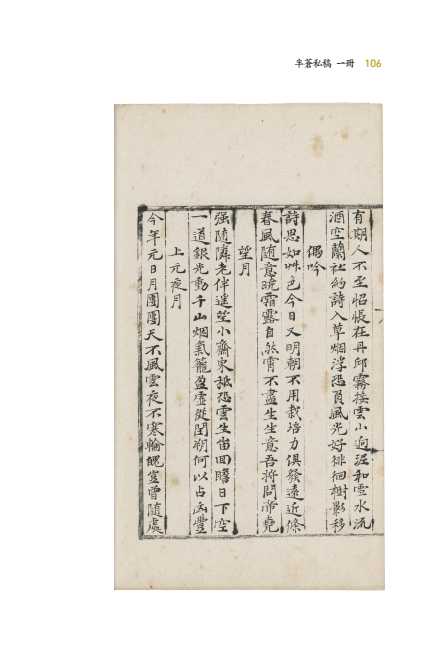 半蒼私稿 一冊 106
有期人不至怊悵在丹邱霧接雲小逈泥和雪水流
酒空蘭社約詩入草烟浮恐負風光好徘徊樹影移
偶吟
詩思如艸色今日又明朝不用栽培力俱發遠近條
春風随意疏霜露自然霄不盡生生意吾將問帝堯
望月
强随隣老伴遠望小齋東秪恐雲生宙回瞻日下空
一道銀光動千山烟氣籠盈虛從閏朔何以占函豐
上元夜月
今年元日月團團天不風雲夜不寒輪魄豈曾随處